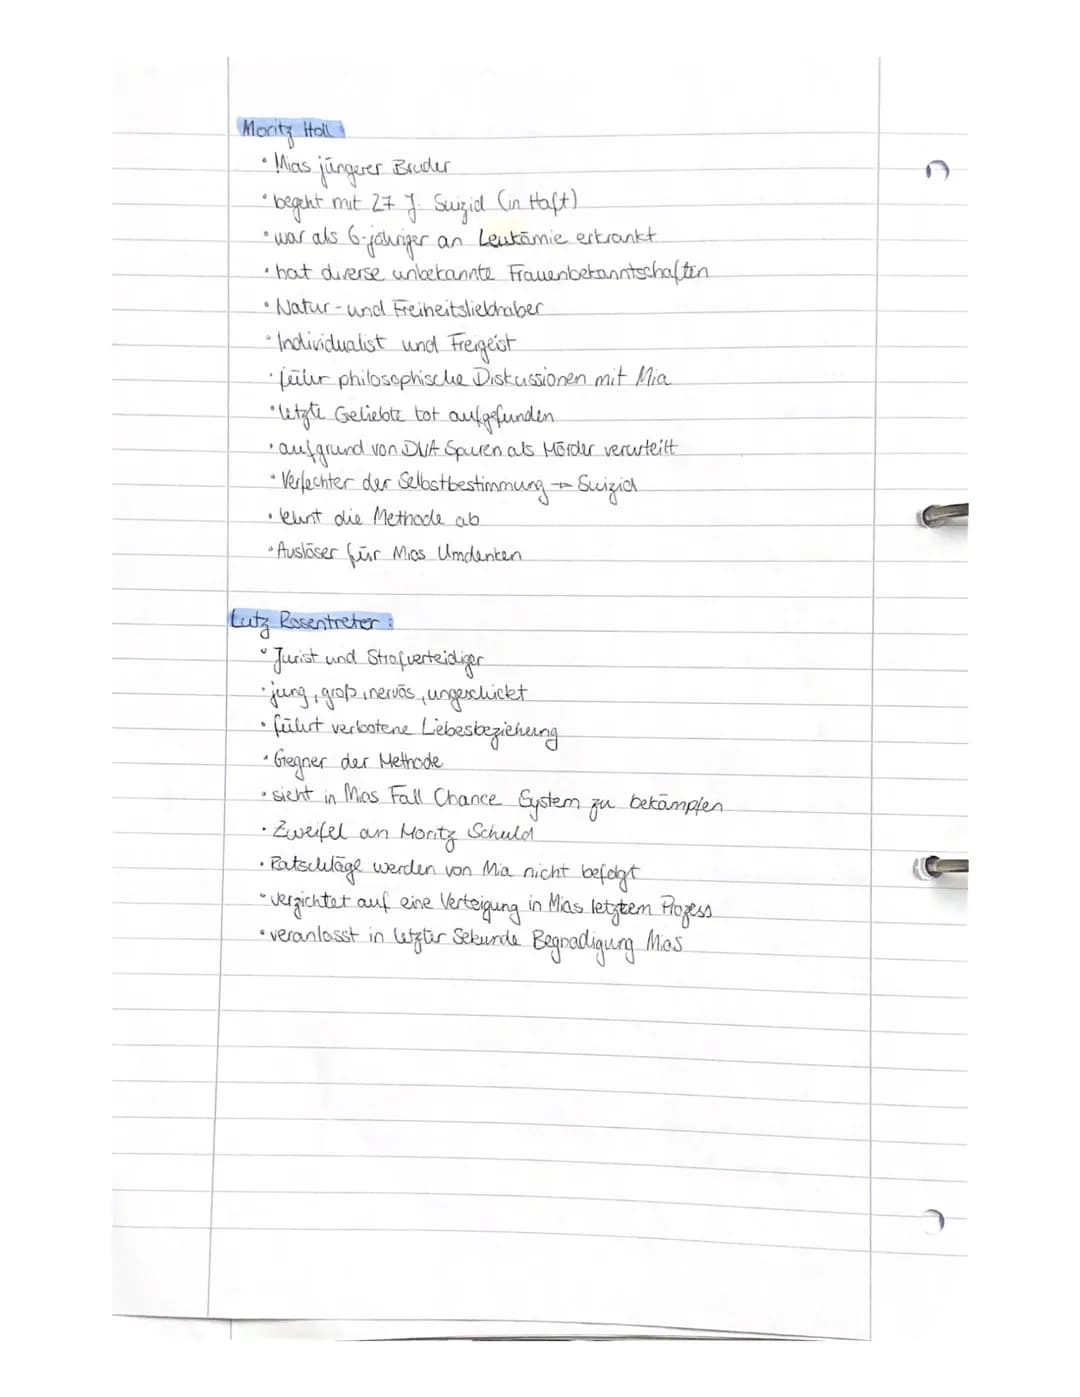 Moritz Holl:
• Mias jüngerer Bruder
• begeht mit 27 J. Suizid (in Haft)
• war als 6-jähriger an Leukämie erkrankt
• hat diverse unbekannte Frauenbekanntschaften
• Natur- und Freiheitsliebhaber
• Individualist und Freigeist
• führ philosophische Diskussionen mit Mia
• letzte Geliebte tot aufgefunden
• aufgrund von DNA Spuren als Mörder verurteilt
• Verfechter der Selbstbestimmung → Suizid
• lehnt die Methode ab
• Auslöser für Mias Umdenken
Lutz Rosentreter:
• Jurist und Strafverteidiger
• jung, groß, nervös, ungeschickt
• führt verbotene Liebesbeziehung
• Gegner der Methode
• sieht in Mias Fall Chance System zu bekämpfen
• Zweifel an Moritz Schuld
• Ratschläge werden von Mia nicht befolgt
• verzichtet auf eine Verteigung in Mias letztem Prozess
• veranlasst in letzter Sekunde Begnadigung Mias